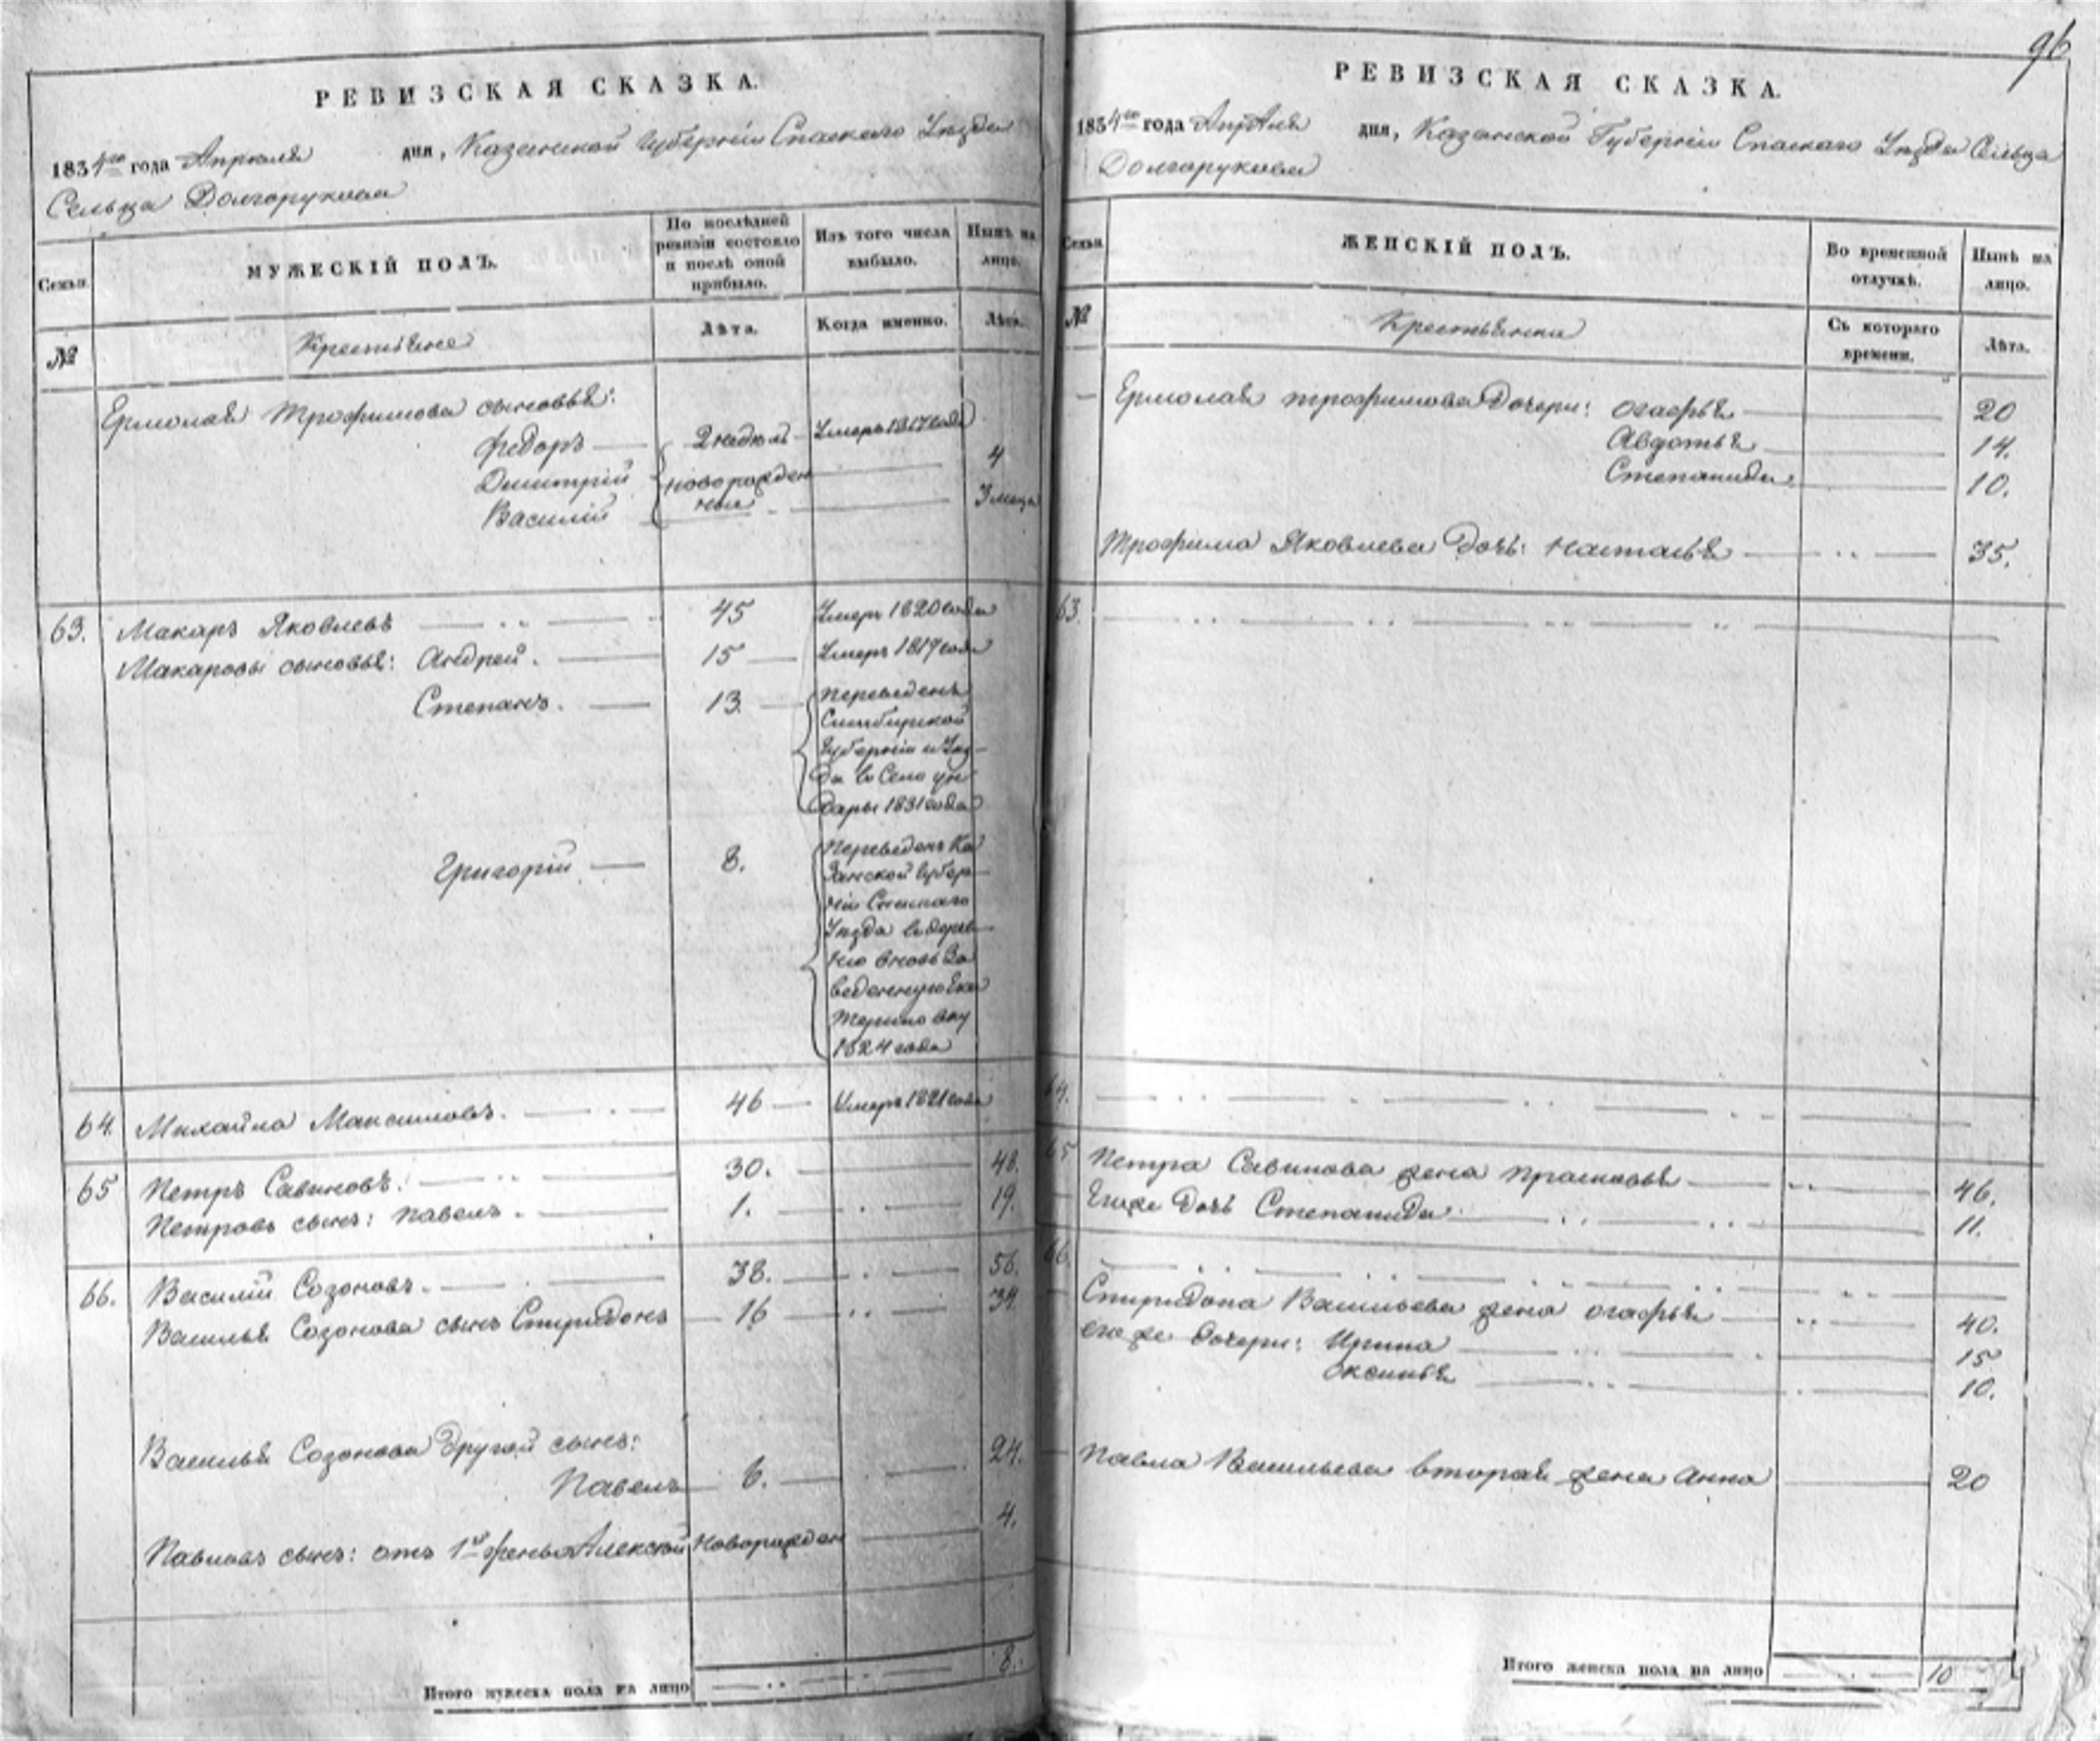 РЕВИЗСКАЯ СКАЗКА.
1834го года Апреля дня, Казанской Губернiи Спаскаго Уѣзда
Сельца Долгорукова
Семьи. МУЖЕСКIЙ ПОЛЪ. По послѣдней ревизiи состояло и послѣ оной прибыло. Изъ того числа выбыло. Нынѣ на лицо.
№ Крестьяне Лѣта. Когда именно. Лѣта.
Ермолая Трофимова сыновья:
Федоръ 2 недѣль Умеръ 1817 года
Дмитрiй новорожден 4
Василiй ные 3 месца
63. Макаръ Яковлевъ 45 Умеръ 1820 года
Макаровы сыновья: Андрей. 15 Умеръ 1819 года
Степанъ. 13. Переведенъ
Симбирской
Губернiи и Уѣз
да въ Село Ун
дары 1831 года
Григорiй 8. Переведенъ Ка
занской Губер
нiи Спаскаго
Уѣзда въ дерев
ню вновь За
веденную Ека
териновку
1824 года
64. Михайла Максимовъ. 46 Умеръ 1821 года
65 Петръ Савиновъ. 30. 48.
Петровъ сынъ: Павелъ. 1. 19.
66. Василiй Созоновъ. 38. 56.
Василья Созонова сынъ Спиридонъ 16 34.
Василья Созонова другой сынъ:
Павелъ 6. 24.
Павловъ сынъ: отъ 1й жены Алексей Новорожден 4.
Итого мужеска пола на лицо 8.
96
РЕВИЗСКАЯ СКАЗКА.
1834го года Апреля дня, Казанской Губернiи Спаскаго Уѣзда Сельца
Долгорукова
Семьи. ЖЕНСКIЙ ПОЛЪ. Во временной отлучкѣ. Нынѣ на лицо.
№ Крестьянки Съ котораго времени. Лѣта.
Ермолая Трофимова Дочери: Огафья 20
Авдотья 14.
Степанида 10.
Трофима Яковлева Дочь: Настасья 35.
63.
64.
65 Петра Савинова жена Прасковья 46.
Егоже Дочь Степанида 11.
66.
Спиридона Васильева жена Огафья 40.
Егоже Дочери: Ирина 15
Оксинья 10.
Павла Васильева вторая жена Анна 20
Итого женска пола на лицо 10